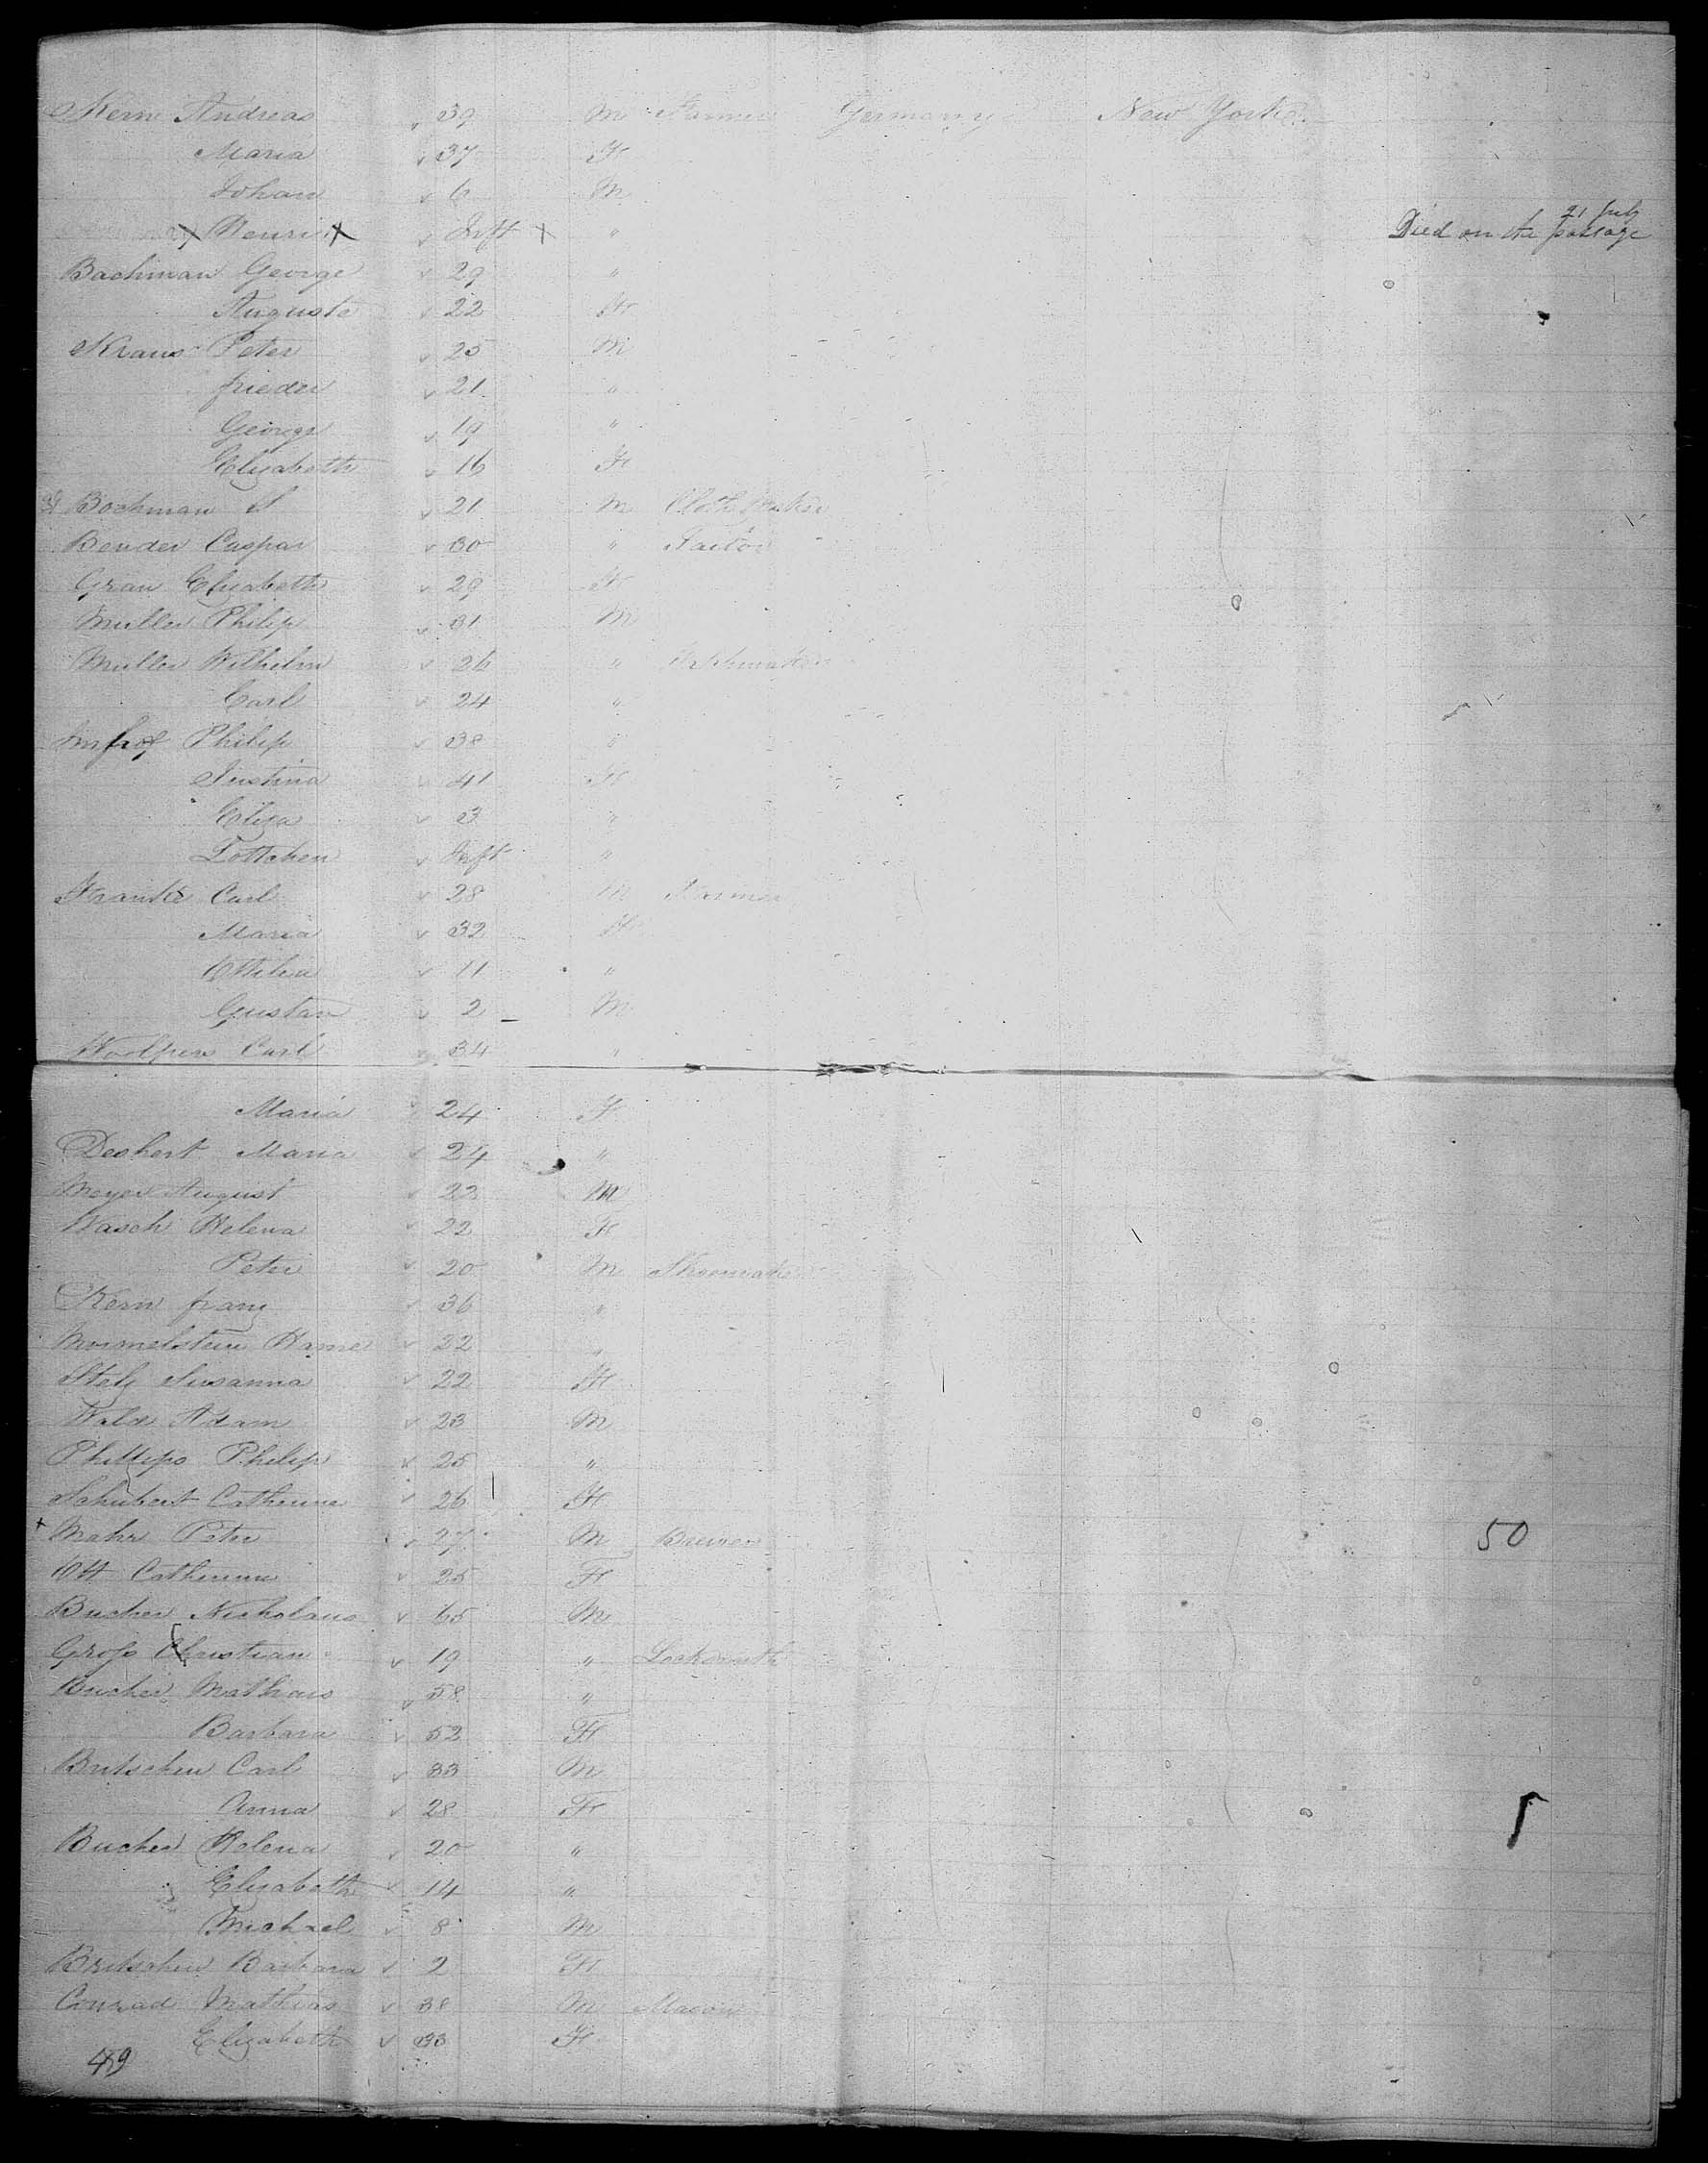 Kern Andreas 39 M Farmer Germany New York
Maria 37 F
Johan 6 M
Henri Inft " Died on the passage 21 July
Bachman George 29 "
Auguste 22 F
Kraus Peter 25 M
frieder 21 "
George 19 "
Elisabeth 16 F
Bochman S 21 M Cloth
Bender Caspar 30 " Tailor
Grau Elisabeth 29 F
Muller Philip 31 M
Muller Wilhelm 26 "
Carl 24 "
Imhof Philip 38 "
Justina 41 F
Eliza 3 "
Lottchen Inft "
Franke Carl 28 M Farmer
Maria 32 F
Ottilia 11 "
Gustav 2 M
Carl 34 "
Maria 24 F
Deshert Maria 24 "
Meyer August 22 M
Wasch Helena 22 F
Peter 20 M Shoemake
Kern franz 36 "
22 "
Stelz Susanna 22 F
Wald Adam 23 M
Phillips Philip 25 "
Schubert Catherine 26 F
Mahr Peter 27 M Brewer 50
Ott Catherine 25 F
Bucher Nicholaus 65 M
Groß Christian 19 " Locksmith
Bucher Mathias 58 "
Barbara 52 F
Britscher Carl 33 M
Anna 28 F
Bucher Helena 20 "
Elisabeth 14 "
Michael 8 M
Britscher Barbara 2 F
Conrad Mathias 38 M Mason
Elizabeth 33 F
49